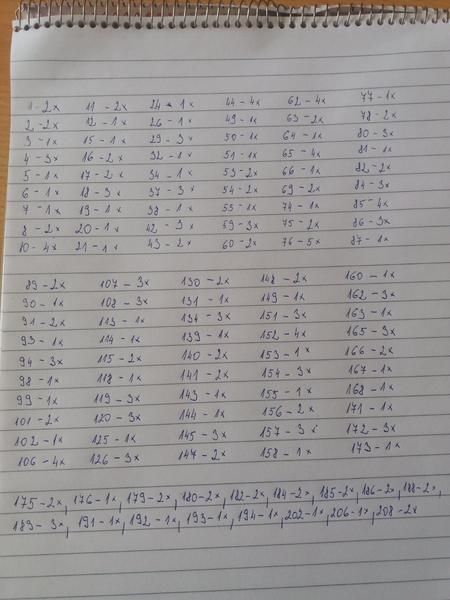 1-2x 11-2x 24-1x 44-4x 62-4x 77-1x
2-2x 12-1x 26-1x 49-1x 63-2x 78-2x
3-1x 15-1x 29-3x 50-1x 64-1x 80-3x
4-3x 16-2x 32-1x 51-1x 65-4x 81-1x
5-1x 17-2x 34-1x 53-2x 66-1x 82-2x
6-1x 18-3x 37-3x 54-2x 69-2x 84-3x
7-1x 19-1x 38-1x 55-1x 74-1x 85-4x
8-2x 20-1x 42-3x 59-3x 75-2x 86-3x
10-4x 21-1x 43-2x 60-2x 76-5x 87-1x
89-2x 107-3x 130-2x 148-2x 160-1x
90-1x 108-3x 131-1x 149-1x 162-3x
91-2x 113-1x 134-3x 151-3x 163-1x
93-1x 114-1x 139-1x 152-4x 165-3x
94-3x 115-2x 140-2x 153-1x 166-2x
98-1x 118-1x 141-2x 154-3x 167-1x
99-1x 119-3x 143-1x 155-1x 168-1x
101-2x 120-3x 144-1x 156-2x 171-1x
102-1x 125-1x 145-3x 157-3x 172-3x
106-4x 126-3x 147-2x 158-1x 173-1x
175-2x, 176-1x, 179-2x, 180-2x, 182-2x, 184-2x, 185-2x, 186-2x, 188-2x,
189-3x, 191-1x, 192-1x, 193-1x, 194-1x, 202-1x, 206-1x, 208-2x